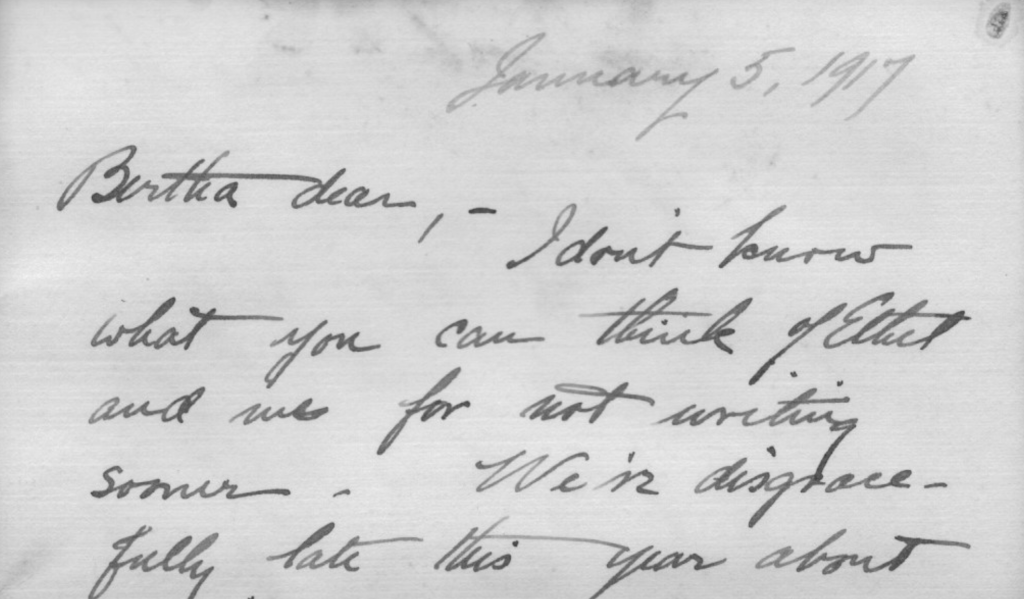 January 5, 1917
Bertha dear, -
I don't know
what you can think of Ethel
and me for not writing
sooner - We're disgrace-
fully late this year about